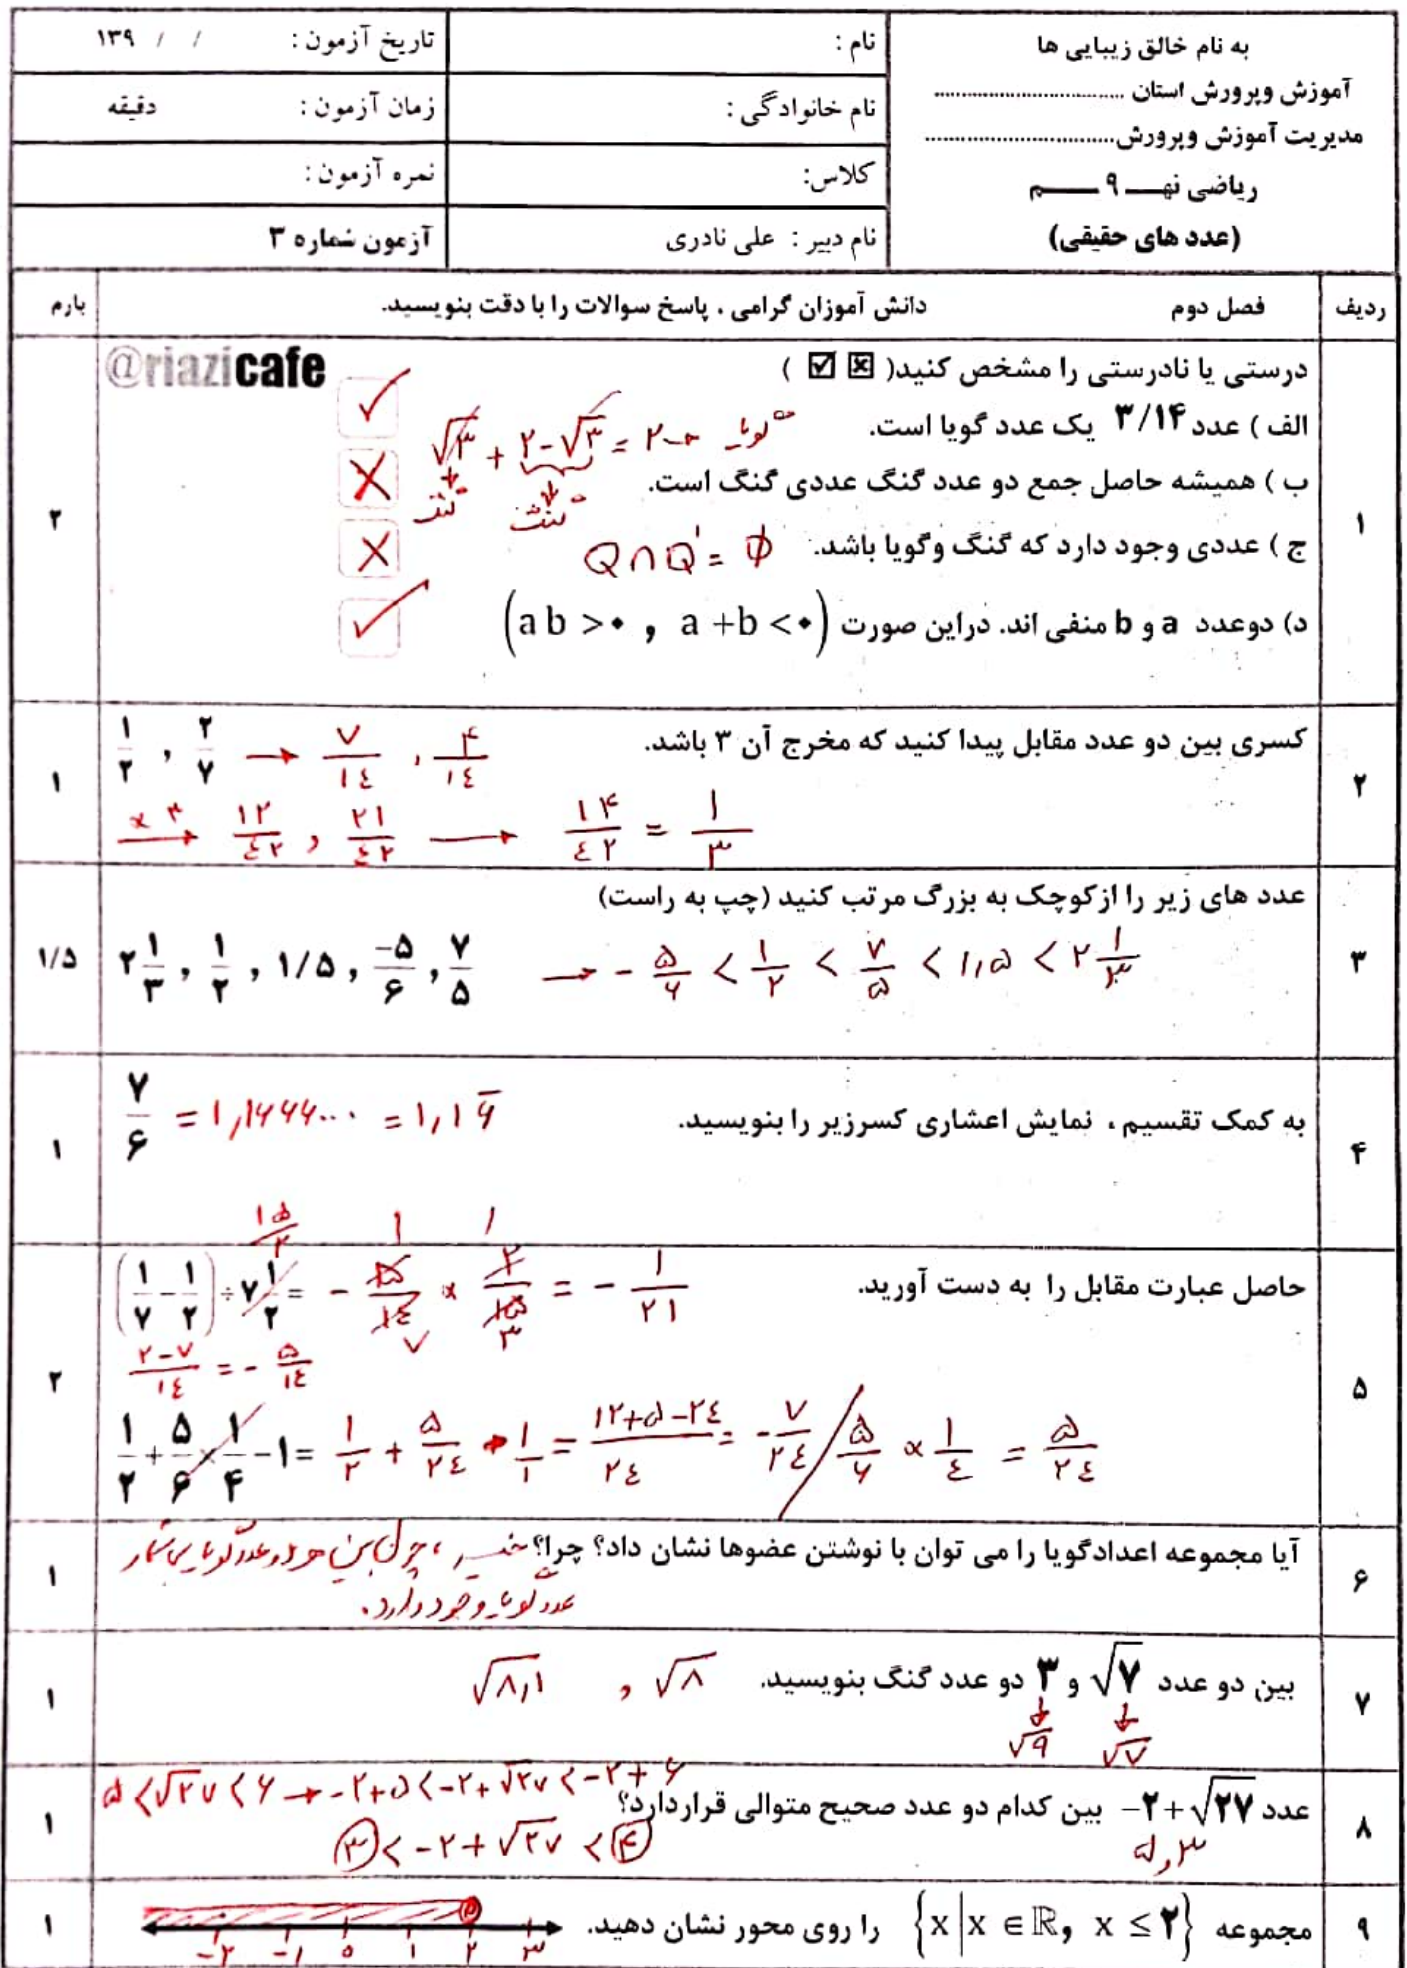 به نام خالق زیبایی ها
آموزش وپرورش استان ................................
مدیریت آموزش وپرورش..............................
ریاضی نهـــ ۹ ــــم
(عدد های حقیقی)
نام :
نام خانوادگی :
کلاس:
نام دبیر : علی نادری
تاریخ آزمون : / / ۱۳۹
زمان آزمون : دقیقه
نمره آزمون :
آزمون شماره ۳
ردیف فصل دوم دانش آموزان گرامی ، پاسخ سوالات را با دقت بنویسید. بارم
@riazicafe
۱ درستی یا نادرستی را مشخص کنید( ☒ ☑ ) ۲
الف ) عدد ۳/۱۴ یک عدد گویا است. ✓
√۳ + ۲-√۳ = ۲ → گویا
ب ) همیشه حاصل جمع دو عدد گنگ عددی گنگ است. ×
گنگ گنگ
ج ) عددی وجود دارد که گنگ وگویا باشد. Q∩Q' = ∅ ×
د) دوعدد a و b منفی اند. دراین صورت (a b >۰ , a +b <۰) ✓
۲ کسری بین دو عدد مقابل پیدا کنید که مخرج آن ۳ باشد. ۱
۱/۲ , ۲/۷ → ۷/۱۴ , ۴/۱۴
×۳ → ۱۲/۴۲ , ۲۱/۴۲ → ۱۴/۴۲ = ۱/۳
۳ عدد های زیر را ازکوچک به بزرگ مرتب کنید (چپ به راست) ۱/۵
۲ ۱/۳ , ۱/۲ , ۱/۵ , -۵/۶ , ۷/۵ → -۵/۶ < ۱/۲ < ۷/۵ < ۱,۵ < ۲ ۱/۳
۴ به کمک تقسیم ، نمایش اعشاری کسرزیر را بنویسید. ۱
۷/۶ = ۱,۱۶۶۶... = ۱,۱۶̅
۵ حاصل عبارت مقابل را به دست آورید. ۲
۱۵/۲
(۱/۷ - ۱/۲) ÷ ۷ ۱/۲ = - ۵/۱۴ × ۲/۱۵ = - ۱/۲۱
۲-۷/۱۴ = - ۵/۱۴
۱/۲ + ۵/۶ × ۱/۴ - ۱ = ۱/۲ + ۵/۲۴ - ۱/۱ = ۱۲+۵-۲۴/۲۴ = -۷/۲۴ / ۵/۶ × ۱/۴ = ۵/۲۴
۶ آیا مجموعه اعدادگویا را می توان با نوشتن عضوها نشان داد؟ چرا؟ خیر ، چون بین هر دو عدد گویا بی شمار ۱
عدد گویا وجود دارد.
۷ بین دو عدد √۷ و ۳ دو عدد گنگ بنویسید. √۸ , √۸,۱ ۱
√۷ √۹
۸ عدد -۲+√۲۷ بین کدام دو عدد صحیح متوالی قراردارد؟ ۱
۵ < √۲۷ < ۶ → -۲+۵ < -۲+√۲۷ < -۲+۶
۵,۳
۳ < -۲+√۲۷ < ۴
۹ مجموعه {x|x ∈ℝ, x ≤۲} را روی محور نشان دهید. ۱
-۲ -۱ ۰ ۱ ۲ ۳